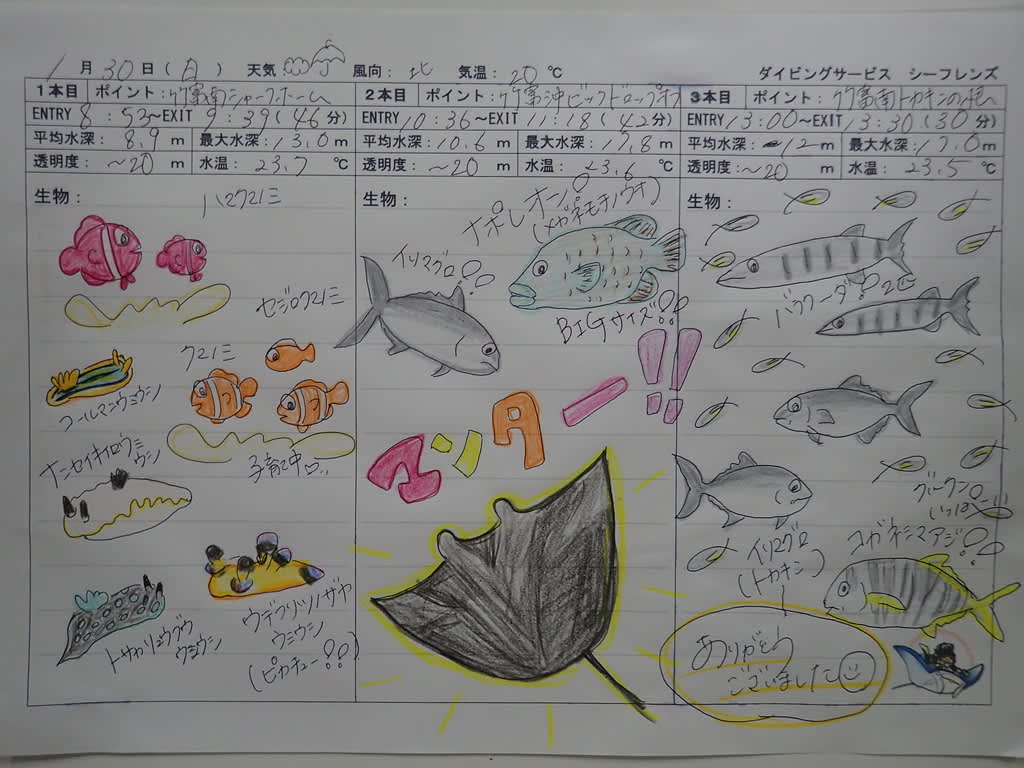 1月30日(日) 天気: 風向: 北 気温: 20℃ ダイビングサービス シーフレンズ
1本目 ポイント: 竹富南シャークホーム
ENTRY 8:53~EXIT 9:39(46分)
平均水深: 8.9m 最大水深: 13.0m
透明度: ~20m 水温: 23.7℃
生物:
ハマクマノミ
セジロクマノミ
クマノミ
コールマンウミウシ
子育て中
ナンセイキイロウミ
ウシ
トサカリュウグウ
ウミウシ
ウデフリツノザヤ
ウミウシ
(ピカチュー!!)
2本目 ポイント: 竹富沖ビックドロップオフ
ENTRY 10:36~EXIT 11:18(42分)
平均水深: 10.6m 最大水深: 17.8m
透明度: ~20m 水温: 23.6℃
生物:
ナポレオン!!
(メガネモチノウオ)
イソマグロ!!
BIGサイズ!!
マンター!!
3本目 ポイント: 竹富南トカキンの根
ENTRY 13:00~EXIT 13:30(30分)
平均水深: 12m 最大水深: 17.0m
透明度: ~20m 水温: 23.5℃
生物:
バラクーダ!! 2匹
グルクン
いっぱーい
イソマグロ
(トカキン)
コガネシマアジ!!
ありがとう
ございました